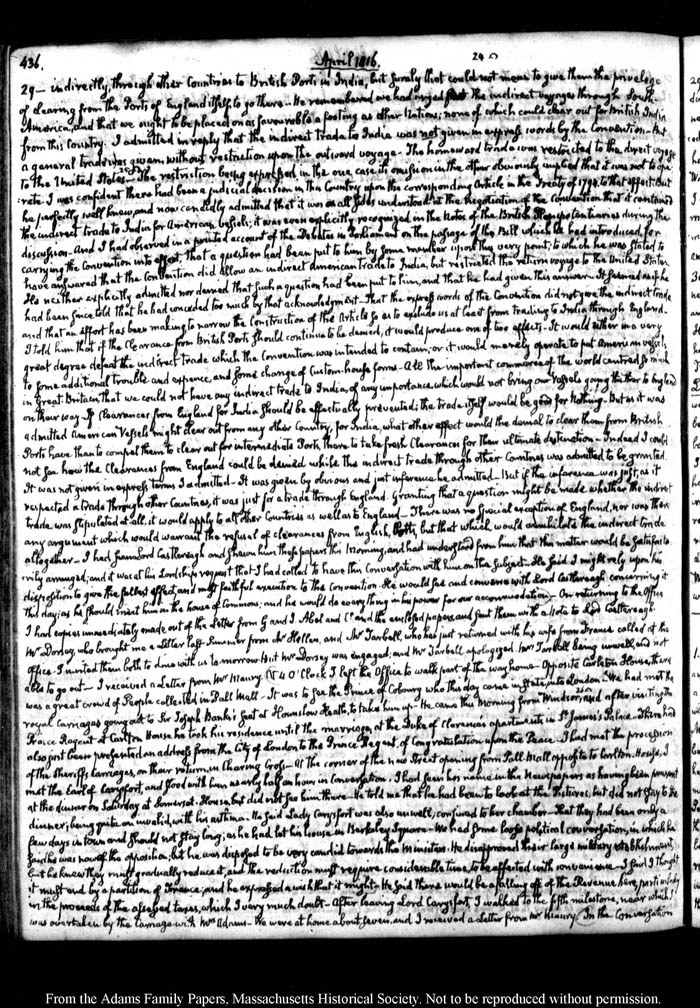 436.
April 1816.
29 — indirectly, through other Countries to British Ports in India, but surely that could not mean to give them the privilege
of clearing from the Ports of England itself to go there — He remembered we had urged the indirect voyages through South
America, and that we ought to be placed on as favourable a footing as other Nations; none of which could clear out for British India
from this Country. I admitted in reply that the indirect trade to India was not given in express words by the Convention — But
a general trade was given without restriction upon the outward voyage — The homeward trade was restricted to the direct voyage
to the United States — The restriction being expressed in the one case its omission in the other obviously implied that it was not to ope
rate. I was confident there had been a judicial decision in this Country upon the corresponding Article in the Treaty of 1794 to that effect. But
he perfectly well knew, and now candidly admitted that it was on all sides understood at the negotiation of the Convention that it contained
the indirect trade to India for American Vessels; it was even explicitly recognized in the Notes of the British Plenipotentiaries during the
discussion — And I had observed in a printed account of the Debates in Parliament on the passage of the Bill which he had introduced for
carrying the Convention into effect, that a question had been put to him by some member upon this very point; to which he was stated to
have answered that the Convention did allow an indirect American trade to India, but restricted the return voyage to the United States.
He neither explicitly admitted nor denied that such a question had been put to him, and that he had given this answer — It seemed as if he
had been since told that he had conceded too much by that acknowledgment — That the express words of the Convention did not give the indirect trade
and that an effort has been making to narrow the construction of the Article so as to exclude us at least from trading to India through England.
I told him that if the Clearance from British Ports should continue to be denied, it would produce one of two effects — It would either in a very
great degree defeat the indirect trade which the Convention was intended to contain; or it would merely operate to put American vessels,
to some additional trouble and expence, and some change of Custom-house forms — All the important commerce of the world centred so much
in Great Britain, that we could not have any indirect trade to India, of any importance, which would not bring our Vessels going thither to England
on their way — If Clearances from England for India should be effectually prevented, the trade itself would be good for nothing — But as it was
admitted American Vessels might clear out from any other Country, for India, what other effect would the denial to clear them from British
Ports have than to compel them to clear out for intermediate Ports, there to take fresh Clearances for their ultimate destination — Indeed I could
not see how the Clearances from England could be denied while the indirect trade through other Countries was admitted to be granted.
It was not given in express terms I admitted — It was given by obvious and just inference he admitted — But if the inference was just, as it
respected a trade through other Countries, it was just for a trade through England. Granting that a question might be made whether the indirect
trade was stipulated at all, it would apply to all other Countries as well as to England — There was no special exception of England, nor was there
any argument which would warrant the refusal of clearances from English Ports, but that which would annihilate the indirect trade
altogether — I had seen Lord Castlereagh and shewn him these papers this Morning, and had understood from him that this matter would be satisfacto
rily arranged; and it was at his Lordship's request that I had called to have this Conversation with him on the Subject — He said I might rely upon his
disposition to give the fullest effect, and most faithful execution to the Convention. He would see and converse with Lord Castlereagh concerning it
this day; as he should meet him in the house of Commons; and he would do everything in his power for our accommodation — On returning to the Office
I had copies immediately made out of the Letter from G and I. Abel and Co. and the enclosed papers, and sent them with a Note to Lord Castlereagh.
Mr Dorsey, who brought me a Letter last Summer from Mr Hellen, and Mr Tarbell, who has just returned with his wife from France called at the
Office — I invited them both to dine with us to-morrow. But Mr Dorsey was engaged; and Mr Tarbell apologized. Mrs Tarbell being unwell, and not
able to go out — I received a Letter from Mr Maury. At 4 O'Clock I left the Office to walk part of the way home — Opposite Carlton House, there
was a great crowd of People collected in Pall Mall — It was to see the Prince of Cobourg who this day came in state, into London. We had met the
royal Carriages going out to Sir Joseph Banks's Seat at Hounslow Heath, to take him up — He came this Morning from Windsor, and after visiting the
Prince Regent at Carlton House he took his residence until the marriage, at the Duke of Clarence's apartments in St. James's Palace — There had
also just been presented an address from the City of London to the Prince Regent, of Congratulation upon the Peace. I had met the procession
of the Sheriff's Carriages, on their return, in Charing Cross — At the corner of the new Street opening from Pall-Mall opposite to Carlton House, I
met the Earl of Carysfort, and stood with him nearly half an hour in Conversation. I had seen his name in the Newspapers as having been present
at the dinner on Saturday at Somerset House, but did not see him there — He told me that he had been to look at the Pictures, but did not stay to the
dinner; being quite an invalid, with his asthma. He said Lady Carysfort was also unwell; confined to her chamber — That they had been only a
few days in town and should not stay long; as he had let his house in Berkeley Square — We had some loose political conversation, in which he
said he was now of the opposition, but he was disposed to be very candid towards the Ministers. He disapproved their large military establishments
but he knew they must gradually reduce it, and the reduction must require considerable time, to be effected with convenience — I said I thought
it must end by a partition of France; and he expressed a wish that it might — He said there would be a falling off of the Revenue here, particularly
in the proceeds of the assessed taxes, which I very much doubt — After leaving Lord Carysfort, I walked to the fifth milestone, near which I
was overtaken by the Carriage with Mrs Adams — We were at home about seven, and I received a Letter from Mr Maury. In the Conversation
From the Adams Family Papers, Massachusetts Historical Society. Not to be reproduced without permission.